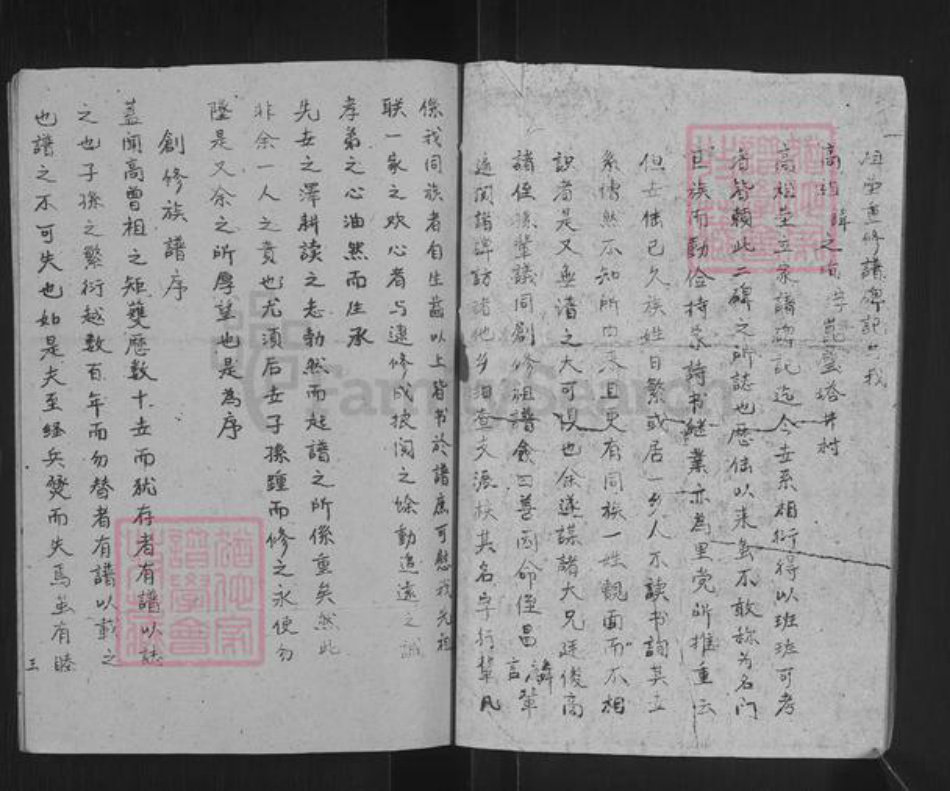 祖堂重修譜碑記曰我
高祖 諱之 字 崑 塋塔井村
高祖堂立家譜碑記迄今世系相衍得以班班可考
者皆賴此二碑之所誌也歷傳以來虽不敢称为名門
巨族而勤儉持家詩书継業亦為里党所推重云
但世傳已久族姓日繁或居一乡人不读书詢其世
系傳然不知所由来且更有同族一姓覿面而不相
識者是又無譜之大可悞也余遂謀諸大兄廷俊高
諸侄孫輩議同創修祖譜僉曰善因命侄昌 輩
遠閱譜碑訪諸他乡細查支派叙其名字行輩凡
係我同族者自生齒以上皆书於譜庶可慰我先祖
联一家之欢心者与逮修成披阅之餘動追遠之誠
孝弟之心油然而生承
先世之澤耕读之志勃然而起譜之所係重矣然此
非余一人之責也尤須后世子孫踵而修之永使勿
墜是又余之所厚望也是為序
創修族譜序
蓋聞高曾相之矩蒦歷数十世而犹存者有譜以誌
之也子孫之繁衍越数百年而勿替者有譜以載之
也譜之不可失也如是夫至经兵燹而失焉虽有睦
三
FamilySearch